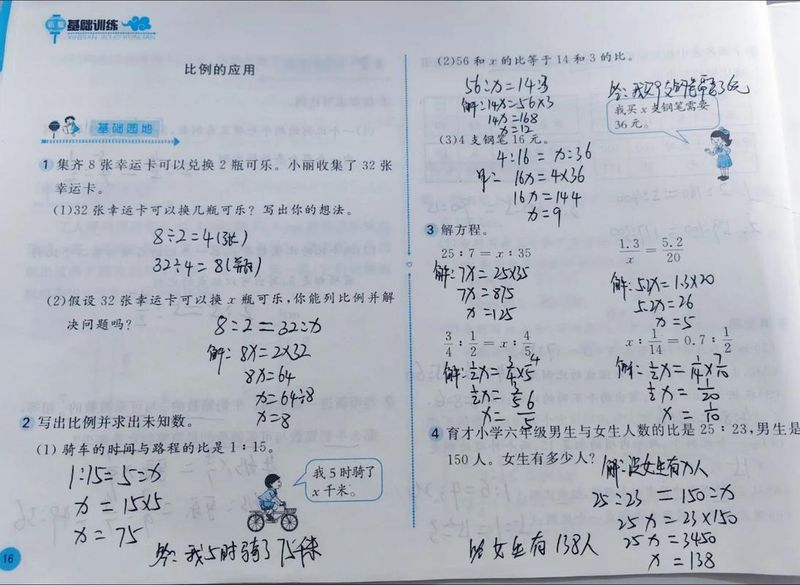 基础训练
比例的应用
基础园地
1 集齐 8 张幸运卡可以兑换 2 瓶可乐。小丽收集了 32 张
幸运卡。
(1)32 张幸运卡可以换几瓶可乐？写出你的想法。
8÷2=4(张)
32÷4=8(瓶)
(2)假设 32 张幸运卡可以换 x 瓶可乐,你能列比例并解
决问题吗？
8:2=32:x
解:8x=2×32
8x=64
x=64÷8
x=8
2 写出比例并求出未知数。
(1) 骑车的时间与路程的比是 1∶15。
1:15=5:x
x=15×5
x=75
我 5 时骑了
x 千米。
答:我5时骑了75千米
16
(2)56 和 x 的比等于 14 和 3 的比。
56:x=14:3
解:14x=56×3
14x=168
x=12
我买 x 支钢笔需要
36 元。
(3)4 支钢笔 16 元。
4:16=x:36
16x=4×36
16x=144
x=9
3 解方程。
25∶7=x∶35
解:7x=25×35
7x=875
x=125
1.3/x=5.2/20
解:5.2x=1.3×20
5.2x=26
x=5
3/4∶1/2=x∶4/5
解:1/2x=3/4×4/5
1/2x=3/5
x=6/5
x∶1/14=0.7∶1/2
解:1/2x=1/14×7/10
1/2x=1/20
x=1/10
4 育才小学六年级男生与女生人数的比是 25∶23,男生是
150 人。女生有多少人？
解:设女生有x人
25:23=150:x
25x=23×150
25x=3450
x=138
答女生有138人